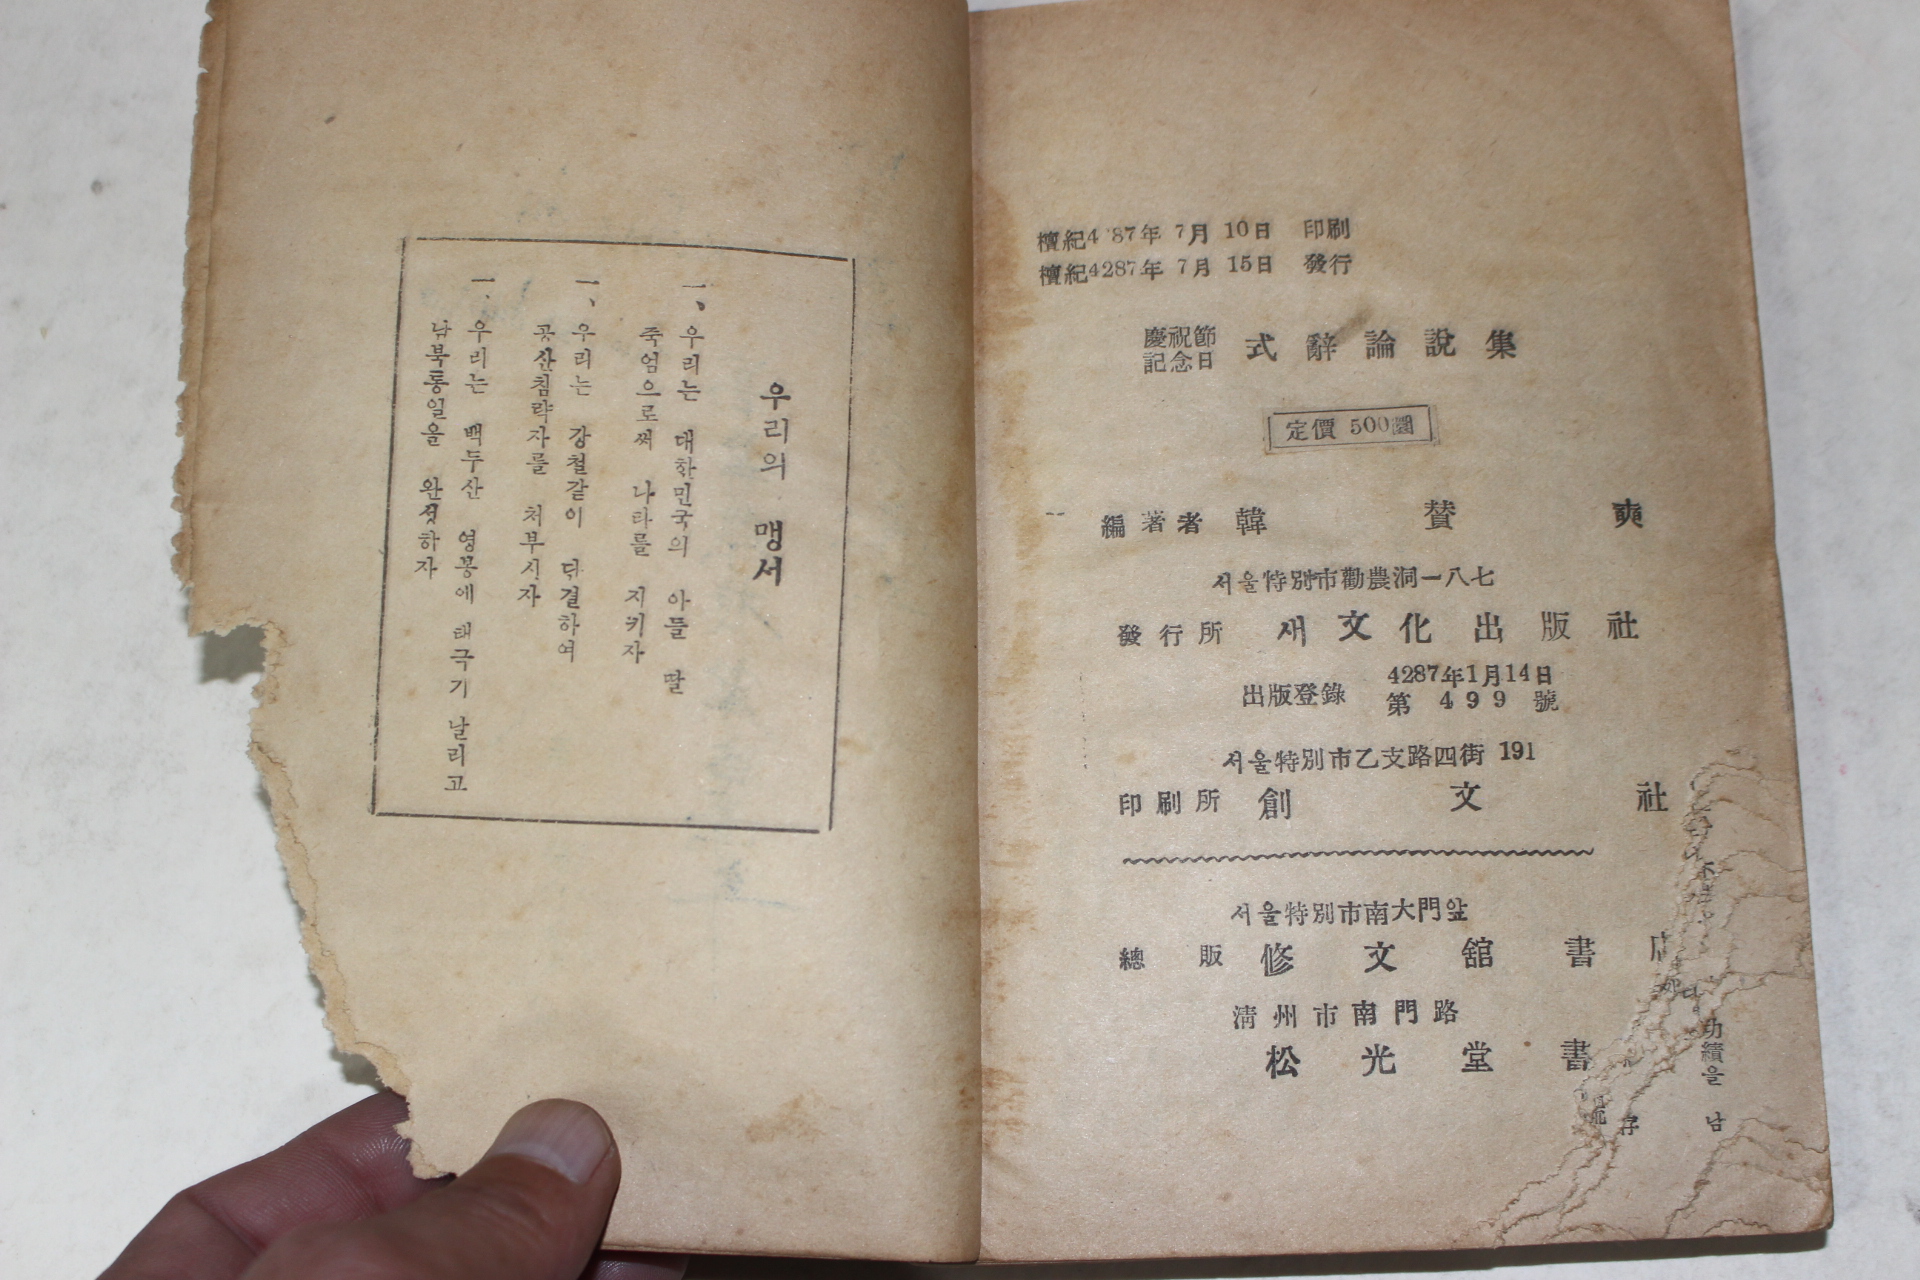 우리의 맹서
一、우리는 대한민국의 아들 딸
죽엄으로써 나라를 지키자
一、우리는 강철같이 단결하여
공산침략자를 처부시자
一、우리는 백두산 영봉에 태극기 날리고
남북통일을 완성하자
檀紀4 87年 7月 10日 印刷
檀紀4287年 7月 15日 發行
慶祝節
記念日
式辭論說集
定價 500圜
編著者 韓 贊 奭
서울特別市勸農洞一八七
發行所 새文化出版社
4287年1月14日
出版登錄 第 499 號
서울特別市乙支路四街 191
印刷所 創 文 社
서울特別市南大門앞
總 販 修文舘書
淸州市南門路
松光堂書
功績을 남